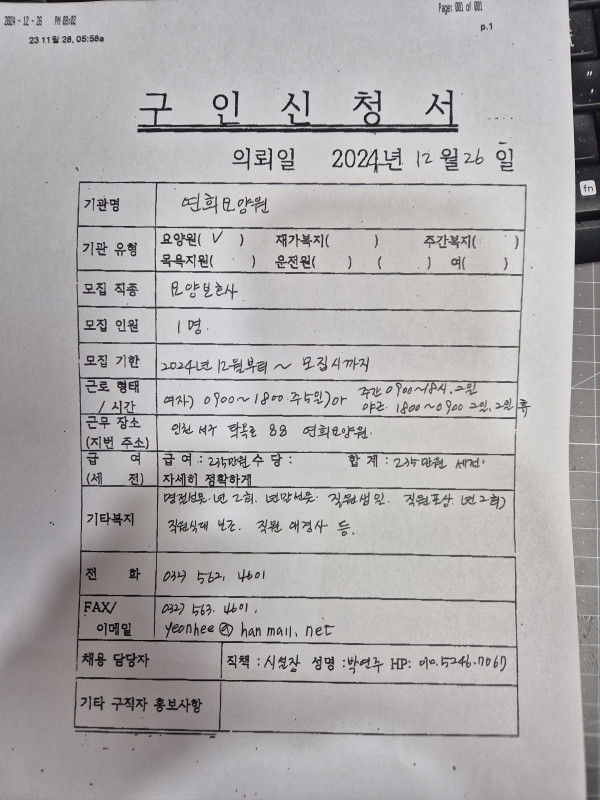 2024-12-26 PM 09:02
Page: 001 of 001
23 11월 28, 05:58a
p.1
구 인 신 청 서
의뢰일 2024년 12월 26일
기관명 연희요양원
기관 유형 요양원( V ) 재가복지( ) 주간복지( )
목욕지원( ) 운전원( ) ( ) 여( )
모집 직종 요양보호사
모집 인원 1명.
모집 기한 2024년 12월부터 ~ 모집시까지
근로 형태 / 시간 여자) 0900~1800 주5일)
주간 0900~18시. 2일
야간 1800~0900 2일. 2일 휴
근무 장소 (지번 주소) 인천 서구 탁옥로 88 연희요양원.
급 여 (세 전) 급 여 : 235만원 수 당 : 합 계 : 235만원 세전.
자세히 정확하게
기타복지 명절선물. 년2회. 년말선물. 직원생일. 직원포상. 년2회)
직원식대 보조. 직원 애경사 등.
전 화 032) 562. 4601
FAX/ 032) 563. 4601.
이메일 yeonhee@hanmail.net
채용 담당자 직책 : 시설장 성명 : 박연주 HP: 010.5246.7067
기타 구직자 홍보사항
fn